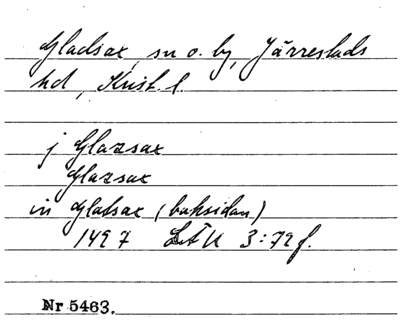 Gladsax, sn o. by, Järrestads
hd, Krist. l.
j Glazsax
Glazsax
in Glatsax (baksidan)
1497 LÅU 3:72 f.
Nr 5463.